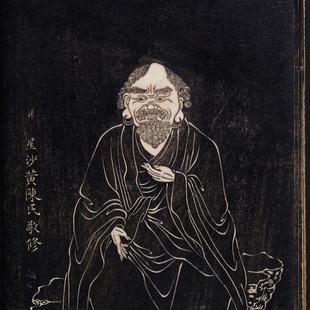 星沙黄陳氏敬修